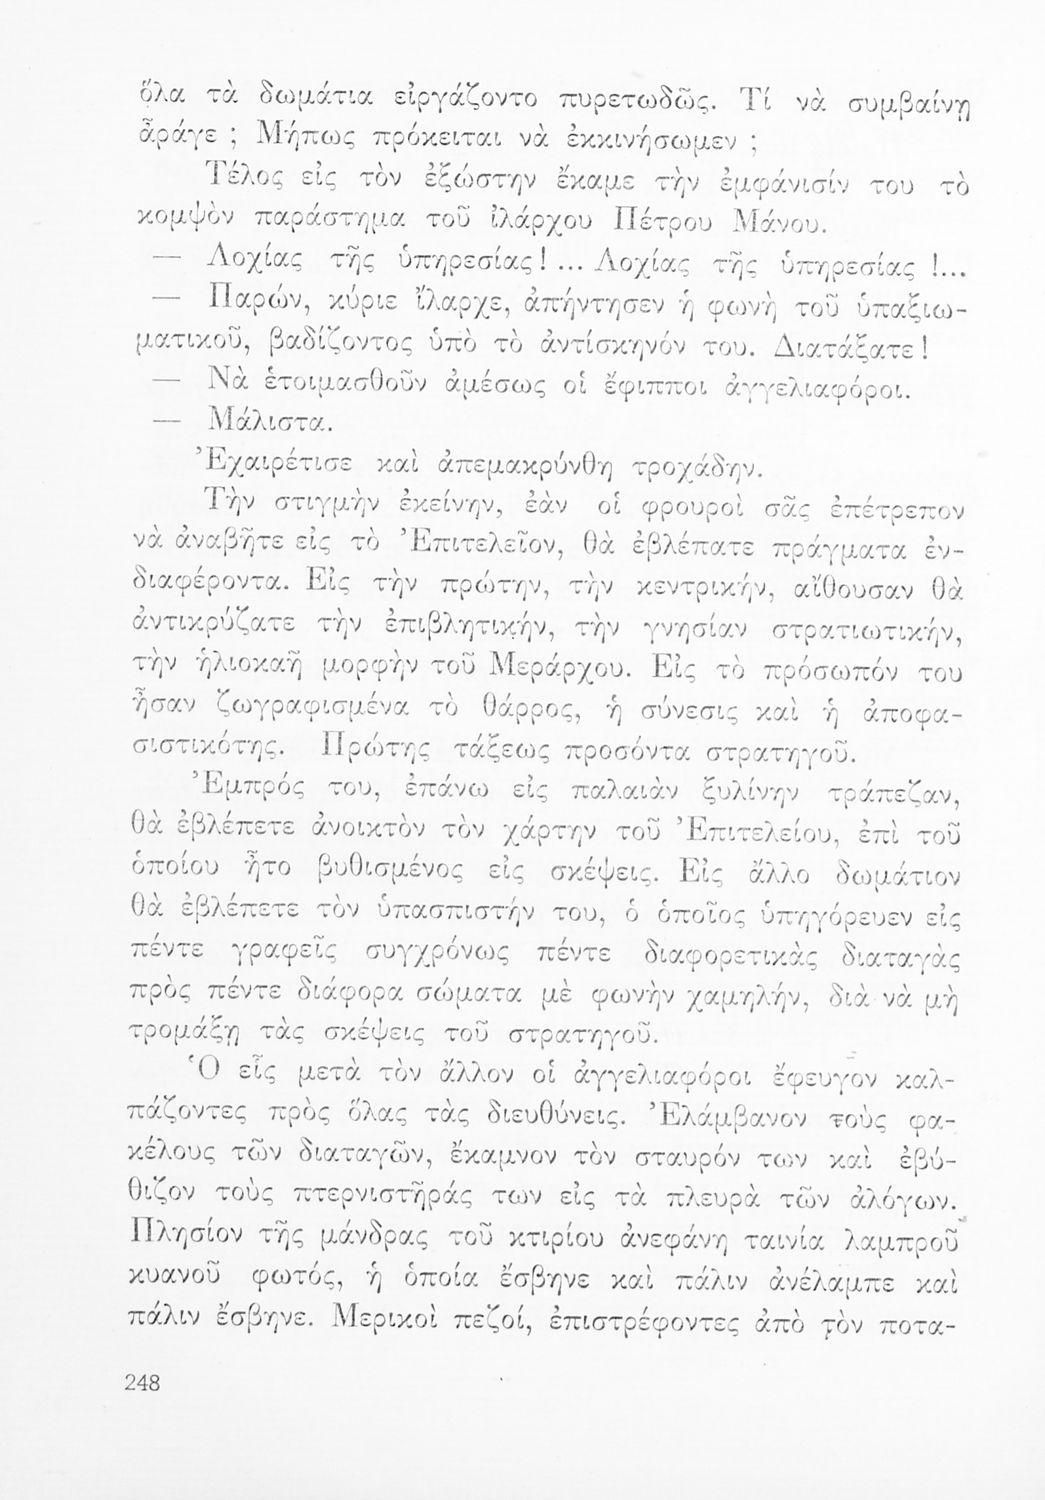 ὅλα τὰ δωμάτια εἰργάζοντο πυρετωδῶς. Τί νὰ συμβαίνῃ
ἆράγε ; Μήπως πρόκειται νὰ ἐκκινήσωμεν ;
Τέλος εἰς τὸν ἐξώστην ἔκαμε τὴν ἐμφάνισίν του τὸ
κομψὸν παράστημα τοῦ ἰλάρχου Πέτρου Μάνου.
— Λοχίας τῆς ὑπηρεσίας! ... Λοχίας τῆς ὑπηρεσίας !...
— Παρών, κύριε ἴλαρχε, ἀπήντησεν ἡ φωνὴ τοῦ ὑπαξιω-
ματικοῦ, βαδίζοντος ὑπὸ τὸ ἀντίσκηνόν του. Διατάξατε!
— Νὰ ἑτοιμασθοῦν ἀμέσως οἱ ἔφιπποι ἀγγελιαφόροι.
— Μάλιστα.
Ἐχαιρέτισε καὶ ἀπεμακρύνθη τροχάδην.
Τὴν στιγμὴν ἐκείνην, ἐὰν οἱ φρουροὶ σᾶς ἐπέτρεπον
νὰ ἀναβῆτε εἰς τὸ Ἐπιτελεῖον, θὰ ἐβλέπατε πράγματα ἐν-
διαφέροντα. Εἰς τὴν πρώτην, τὴν κεντρικήν, αἴθουσαν θὰ
ἀντικρύζατε τὴν ἐπιβλητικήν, τὴν γνησίαν στρατιωτικήν,
τὴν ἡλιοκαῆ μορφὴν τοῦ Μεράρχου. Εἰς τὸ πρόσωπόν του
ἦσαν ζωγραφισμένα τὸ θάρρος, ἡ σύνεσις καὶ ἡ ἀποφα-
σιστικότης. Πρώτης τάξεως προσόντα στρατηγοῦ.
Ἐμπρός του, ἐπάνω εἰς παλαιὰν ξυλίνην τράπεζαν,
θὰ ἐβλέπετε ἀνοικτὸν τὸν χάρτην τοῦ Ἐπιτελείου, ἐπὶ τοῦ
ὁποίου ἦτο βυθισμένος εἰς σκέψεις. Εἰς ἄλλο δωμάτιον
θὰ ἐβλέπετε τὸν ὑπασπιστήν του, ὁ ὁποῖος ὑπηγόρευεν εἰς
πέντε γραφεῖς συγχρόνως πέντε διαφορετικὰς διαταγὰς
πρὸς πέντε διάφορα σώματα μὲ φωνὴν χαμηλήν, διὰ νὰ μὴ
τρομάξῃ τὰς σκέψεις τοῦ στρατηγοῦ.
Ὁ εἷς μετὰ τὸν ἄλλον οἱ ἀγγελιαφόροι ἔφευγον καλ-
πάζοντες πρὸς ὅλας τὰς διευθύνεις. Ἐλάμβανον τοὺς φα-
κέλους τῶν διαταγῶν, ἔκαμνον τὸν σταυρόν των καὶ ἐβύ-
θιζον τοὺς πτερνιστῆράς των εἰς τὰ πλευρὰ τῶν ἀλόγων.
Πλησίον τῆς μάνδρας τοῦ κτιρίου ἀνεφάνη ταινία λαμπροῦ
κυανοῦ φωτός, ἡ ὁποία ἔσβηνε καὶ πάλιν ἀνέλαμπε καὶ
πάλιν ἔσβηνε. Μερικοὶ πεζοί, ἐπιστρέφοντες ἀπὸ τὸν ποτα-
248